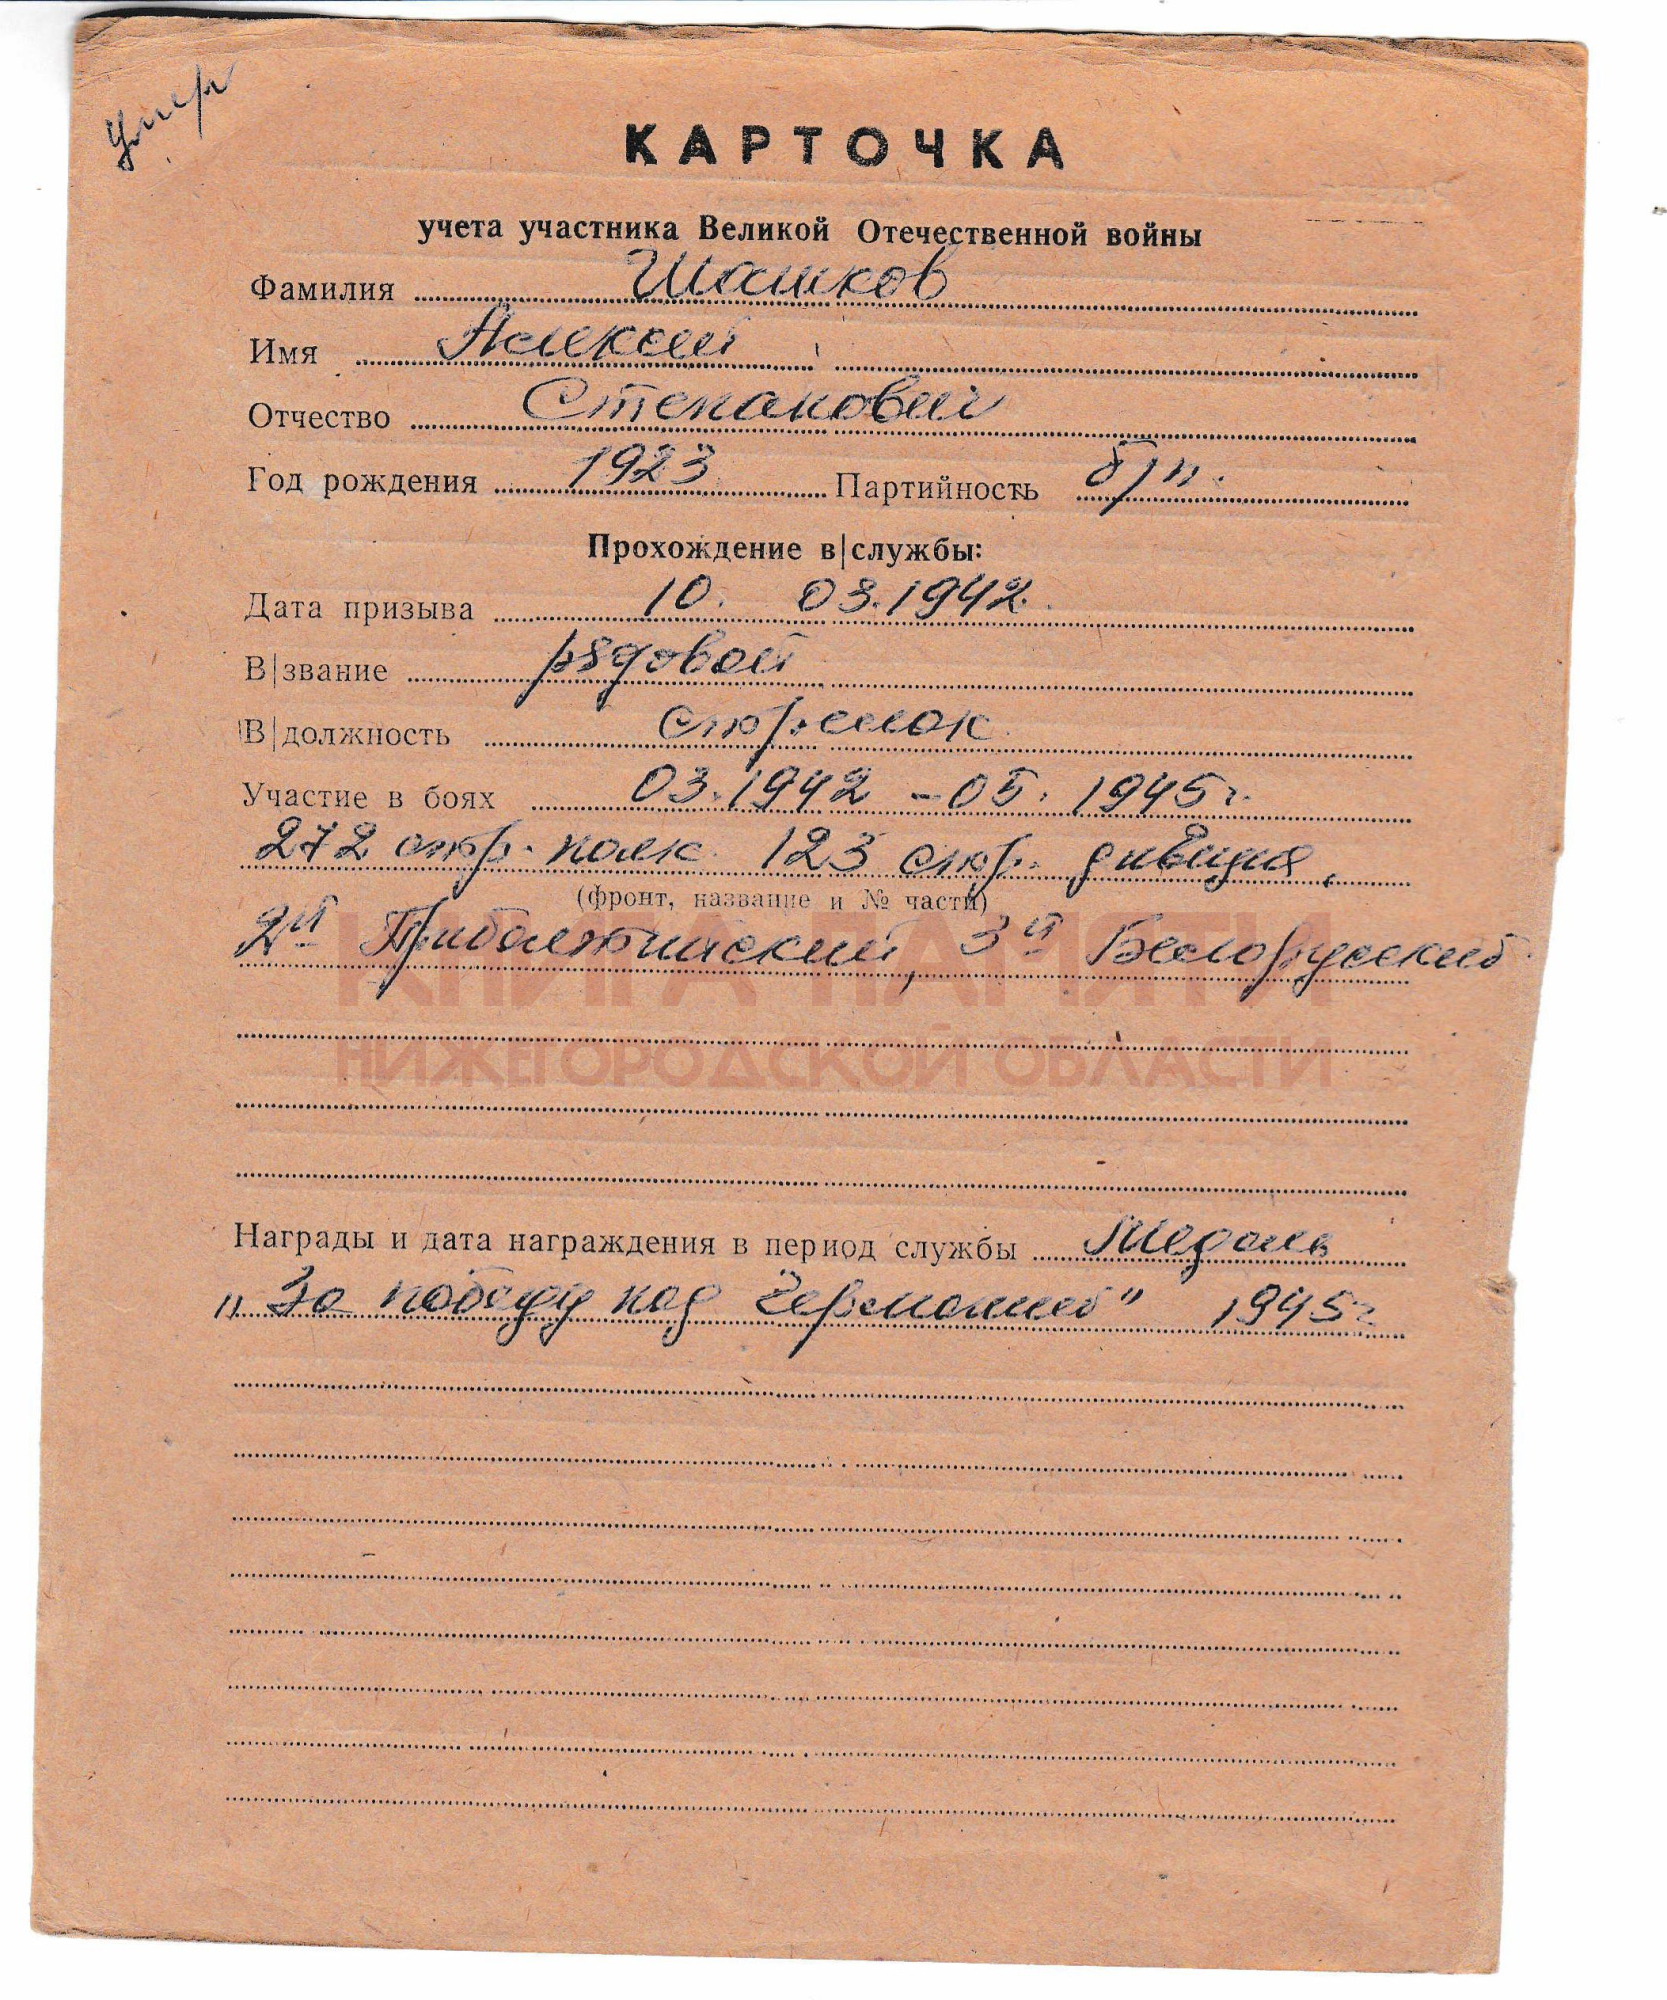 умер
КАРТОЧКА
учета участника Великой Отечественной войны
Фамилия Шашков
Имя Алексей
Отчество Степанович
Год рождения 1923 Партийность б/п.
Прохождение в|службы:
Дата призыва 10. 03.1942.
В|звание рядовой
В|должность стрелок
Участие в боях 03.1942 - 05.1945г.
272 стр. полк. 123 стр. дивизия,
(фронт, название и № части)
2й Прибалтийский, 3й Белорусский
КНИГА ПАМЯТИ
НИЖЕГОРОДСКОЙ ОБЛАСТИ
Награды и дата награждения в период службы Медаль
"За победу над Германией" 1945г